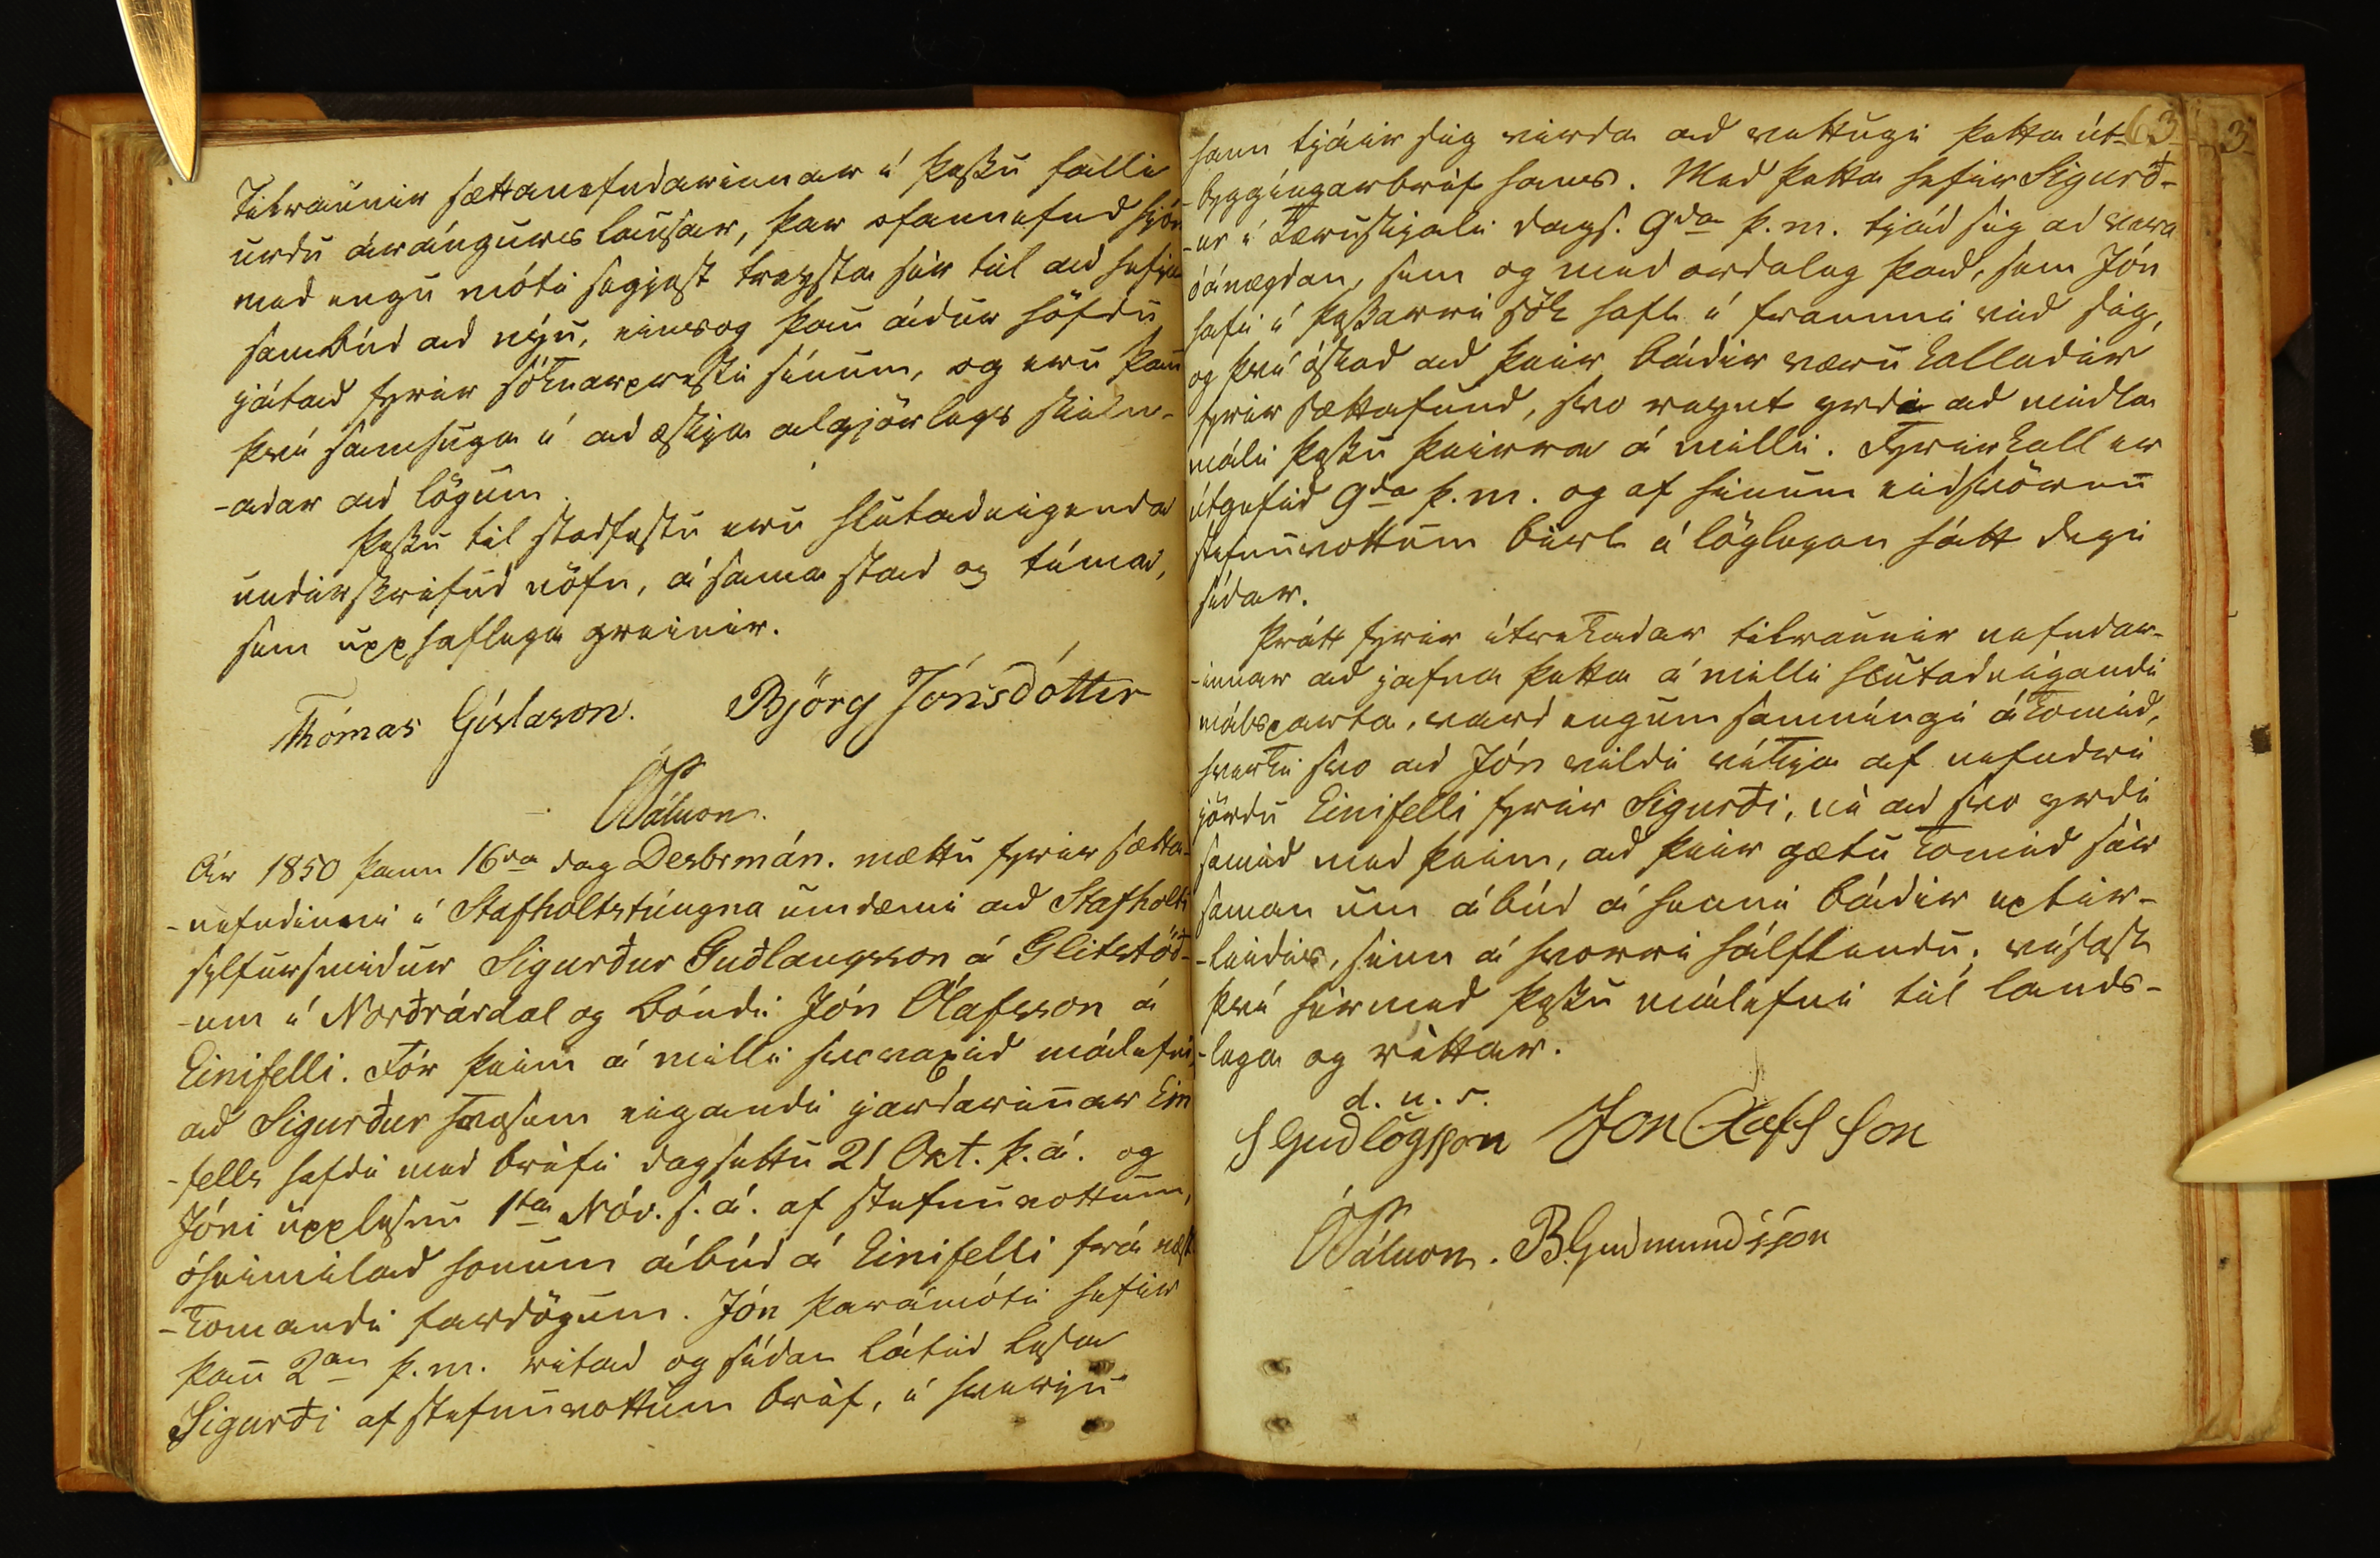 Tilraunir sættanefndarinnar í þessu falli
urdu árángurslausar, þar ofannefnd hjón
med engu móti segjast treysta sér til ad hefja
sambúd ad nýu, einsog þau ádur höfdu
játad fyrir sóknarpresti sínum, og eru þau
því samhuga í ad æskja algjörlegs skiln-
-adar ad lögum.
Þessu til stadfestu eru hlutadeigenda
undirskrifud nöfn, á sama stad og tíma,
sem upphaflega greinir.
Thómas Gíslason. Björg Jónsdótter
ÓPálsson.
Ár 1850 þann 16da dag Desbrmán. mættu fyrir sætta-
-nefndinni í Stafholtstúngna umdæmi ad Stafholti
sylfursmidur Sigurður Guðlaugsson á Glitstöð-
-um í Norðrárdal og bóndi Jón Ólafsson á
Einifelli. Fór þeim á milli svovaxid málefni,
ad Sigurður svosem eigandi jardarinnar Eini
-fells hafdi med bréfi dagsettu 21 Okt. þ.á. og
Jóni upplesnu 1ta Nóv. s.á. af stefnuvottum,
óheimilad honum ábúd á Einifelli frá næst
-komandi fardögum. Jón þarámóti hefir
þann 2an þ.m. ritad og sídan látid lesa
Sigurði af stefnuvottum bréf, í hverju
63 3
hann tjáir sig virda ad vettugi þetta út-
-byggíngarbréf hans. Med þetta hefir Sigurð-
-ur í kæruskjali dags. 9da þ.m. tjád sig ad vera
óánægdan, sem og med ordalag þad, sem Jón
hafi í þessarri sök haft í frammi vid sig,
og því óskad ad þeir bádir væru kalladir
fyrir sættafund, svo reynt yrdi ad midla
máli þessu þeirra á milli. Fyrirkall er
útgefid 9da þ.m. og af hinum eidsvörnu
stefnuvottum birt á löglegan hátt degi
sídar.
Þrátt fyrir ítrekadar tilraunir nefndar-
-innar ad jafna þetta á milli hlutadeigandi
málsparta, vard engum samníngi ákomid,
hvorki svo ad Jón vildi víkja af nefndri
jördu Einifelli fyrir Sigurði, né ad svo yrdi
samid med þeim, ad þeir gætu komid sér
saman um ábúd á henni bádir eptir-
-leidis, sinn á hvorri hálflendu; vísast
því hérmed þessu málefni til lands-
-laga og réttar.
d. u. s.
S Gudlögsson Jon Olafs Son
ÓPálsson. B. Gudmundsson